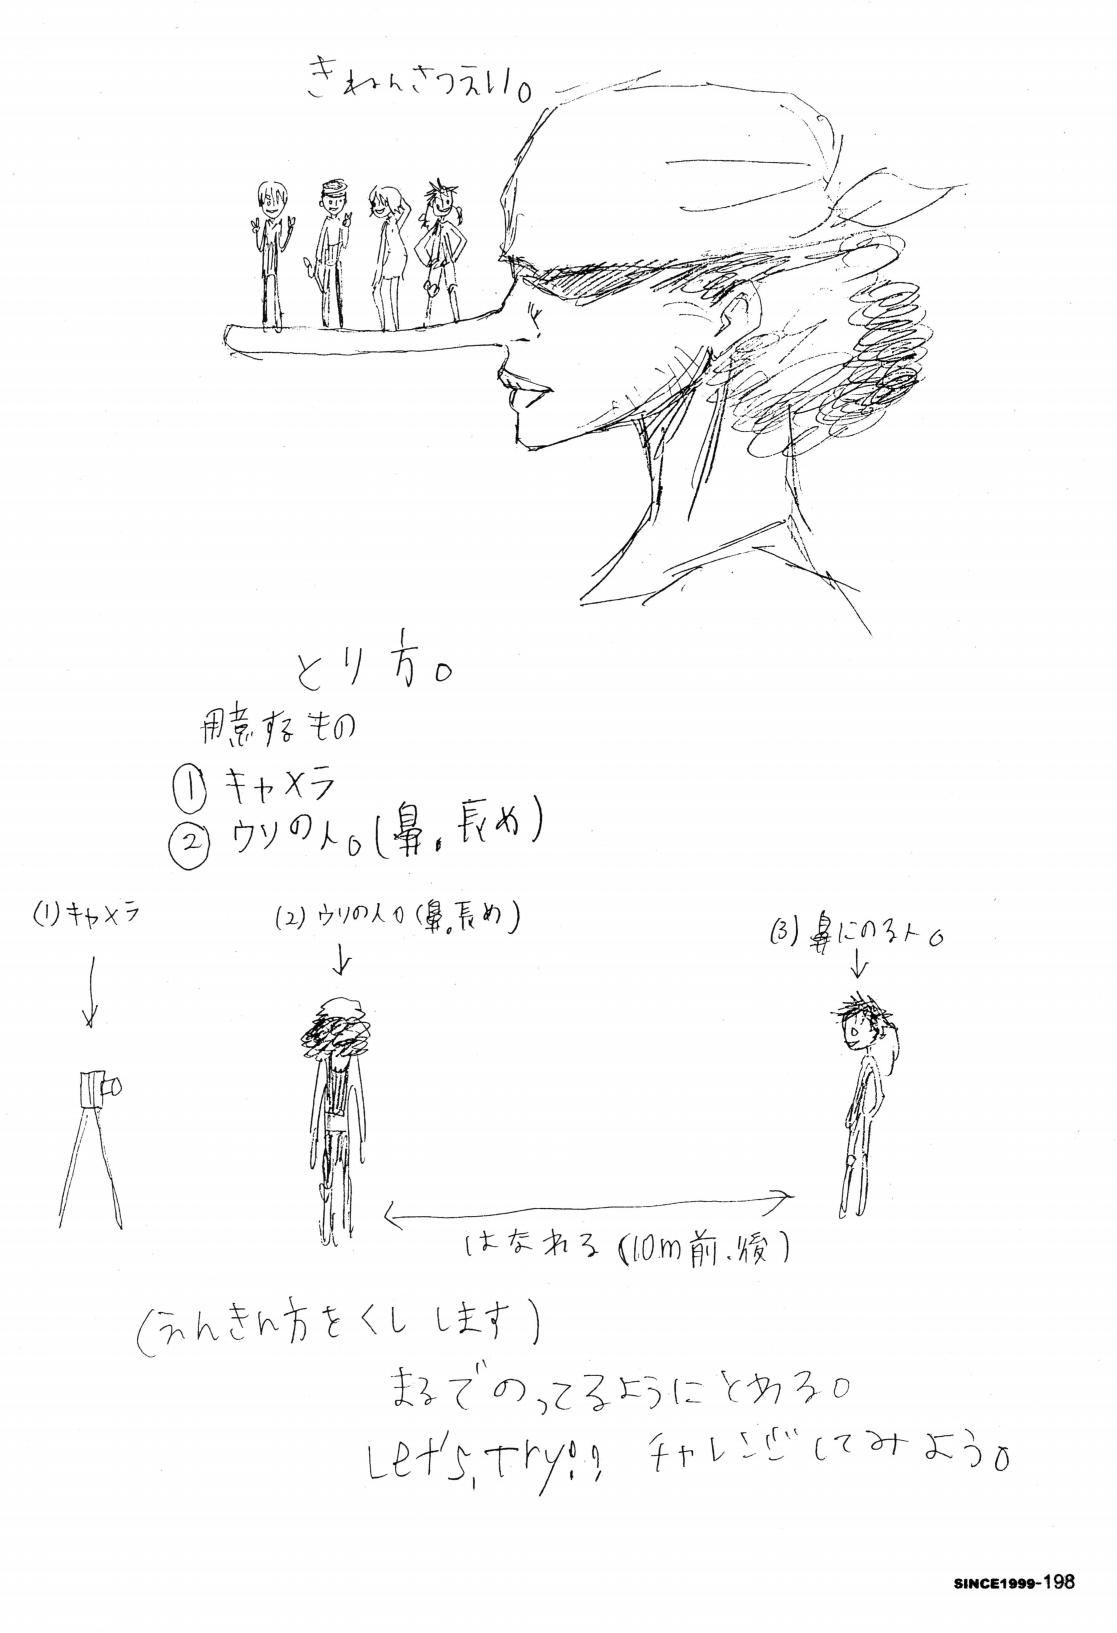 きねんさつえい。
とり方。
用意するもの
① キャメラ
② ウソの人。(鼻。長め)
(1)キャメラ
(2)ウソの人。(鼻。長め)
(3)鼻にのる人。
はなれる(10m前、後)
(えんきん方をくし します)
まるでのってるようにとれる。
Let's,try!! チャレンジしてみよう。
SINCE1999-198